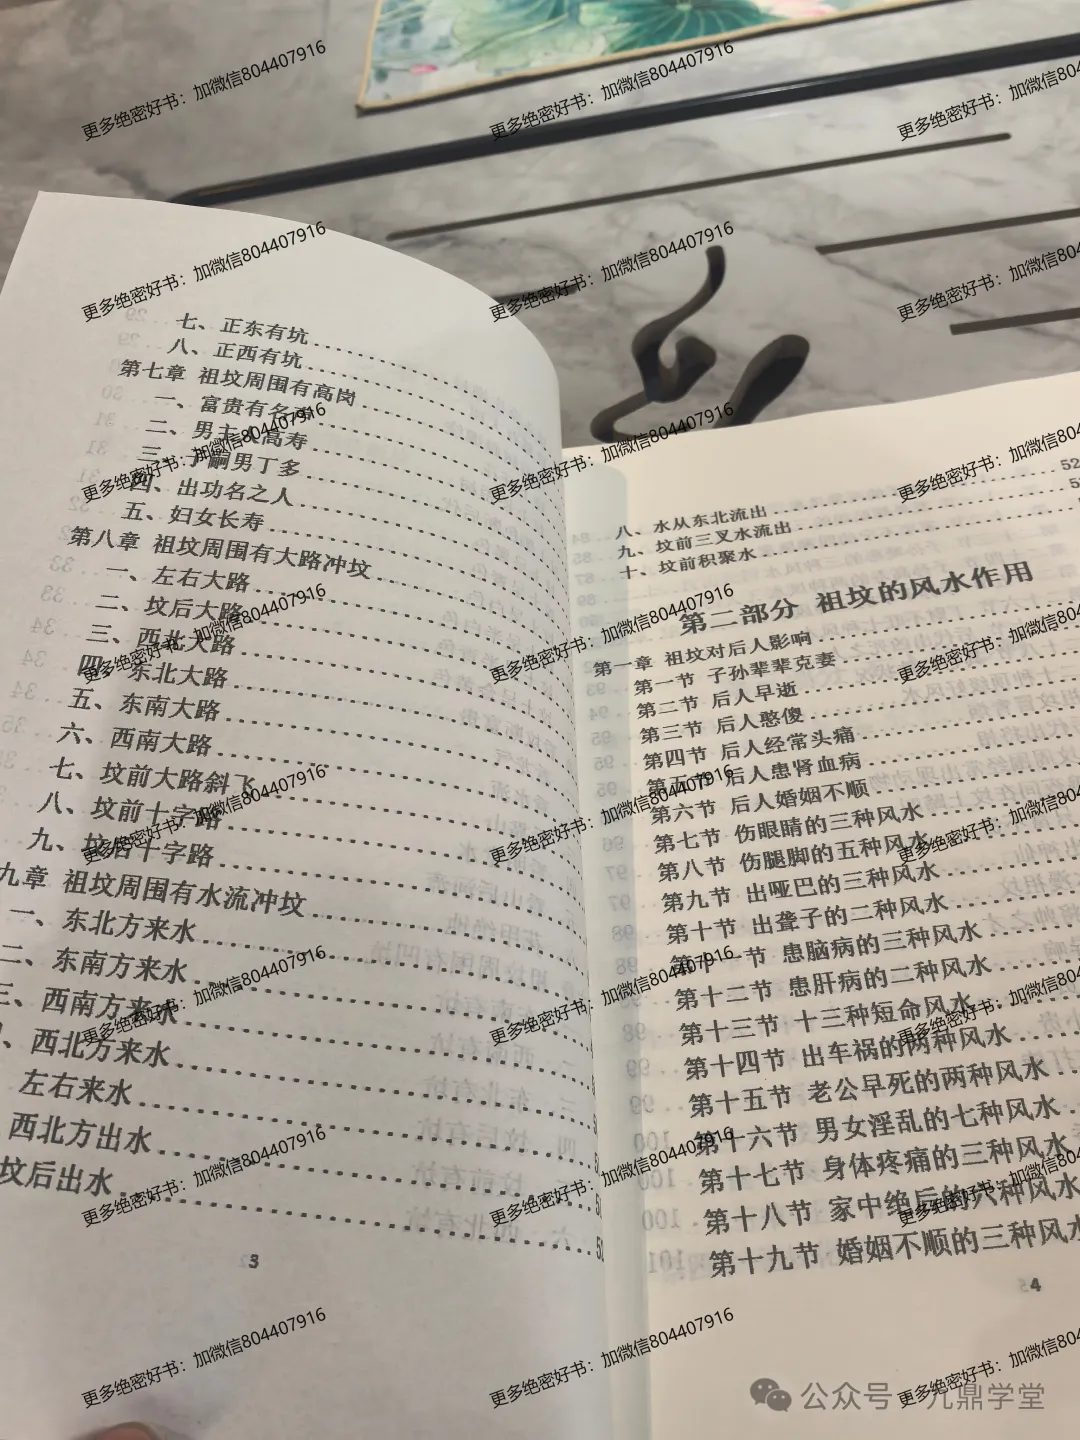 七、正东有坑
八、正西有坑
第七章 祖坟周围有高岗
一、富贵有名
二、男主人高寿
三、子嗣男丁多
四、出功名之人
五、妇女长寿
第八章 祖坟周围有大路冲坟
一、左右大路
二、坟后大路
三、西北大路
四、东北大路
五、东南大路
六、西南大路
七、坟前大路斜飞
八、坟前十字路
九、坟后十字路
九章 祖坟周围有水流冲坟
一、东北方来水
二、东南方来水
三、西南方来水
、西北方来水
左右来水
西北方出水
坟后出水
3
八、水从东北流出 52
九、坟前三叉水流出
十、坟前积聚水
第二部分 祖坟的风水作用
第一章 祖坟对后人影响
第一节 子孙辈辈克妻
第二节 后人早逝
第三节 后人憨傻
第四节 后人经常头痛
第五节 后人患肾血病
第六节 后人婚姻不顺
第七节 伤眼睛的三种风水
第八节 伤腿脚的五种风水
第九节 出哑巴的三种风水
第十节 出聋子的二种风水
第十一节 患脑病的三种风水
第十二节 患肝病的二种风水
第十三节 十三种短命风水
第十四节 出车祸的两种风水
第十五节 老公早死的两种风水
第十六节 男女淫乱的七种风水
第十七节 身体疼痛的三种风水
第十八节 家中绝后的六种风水
第十九节 婚姻不顺的三种风水
4
更多绝密好书：加微信804407916
公众号 九鼎学堂